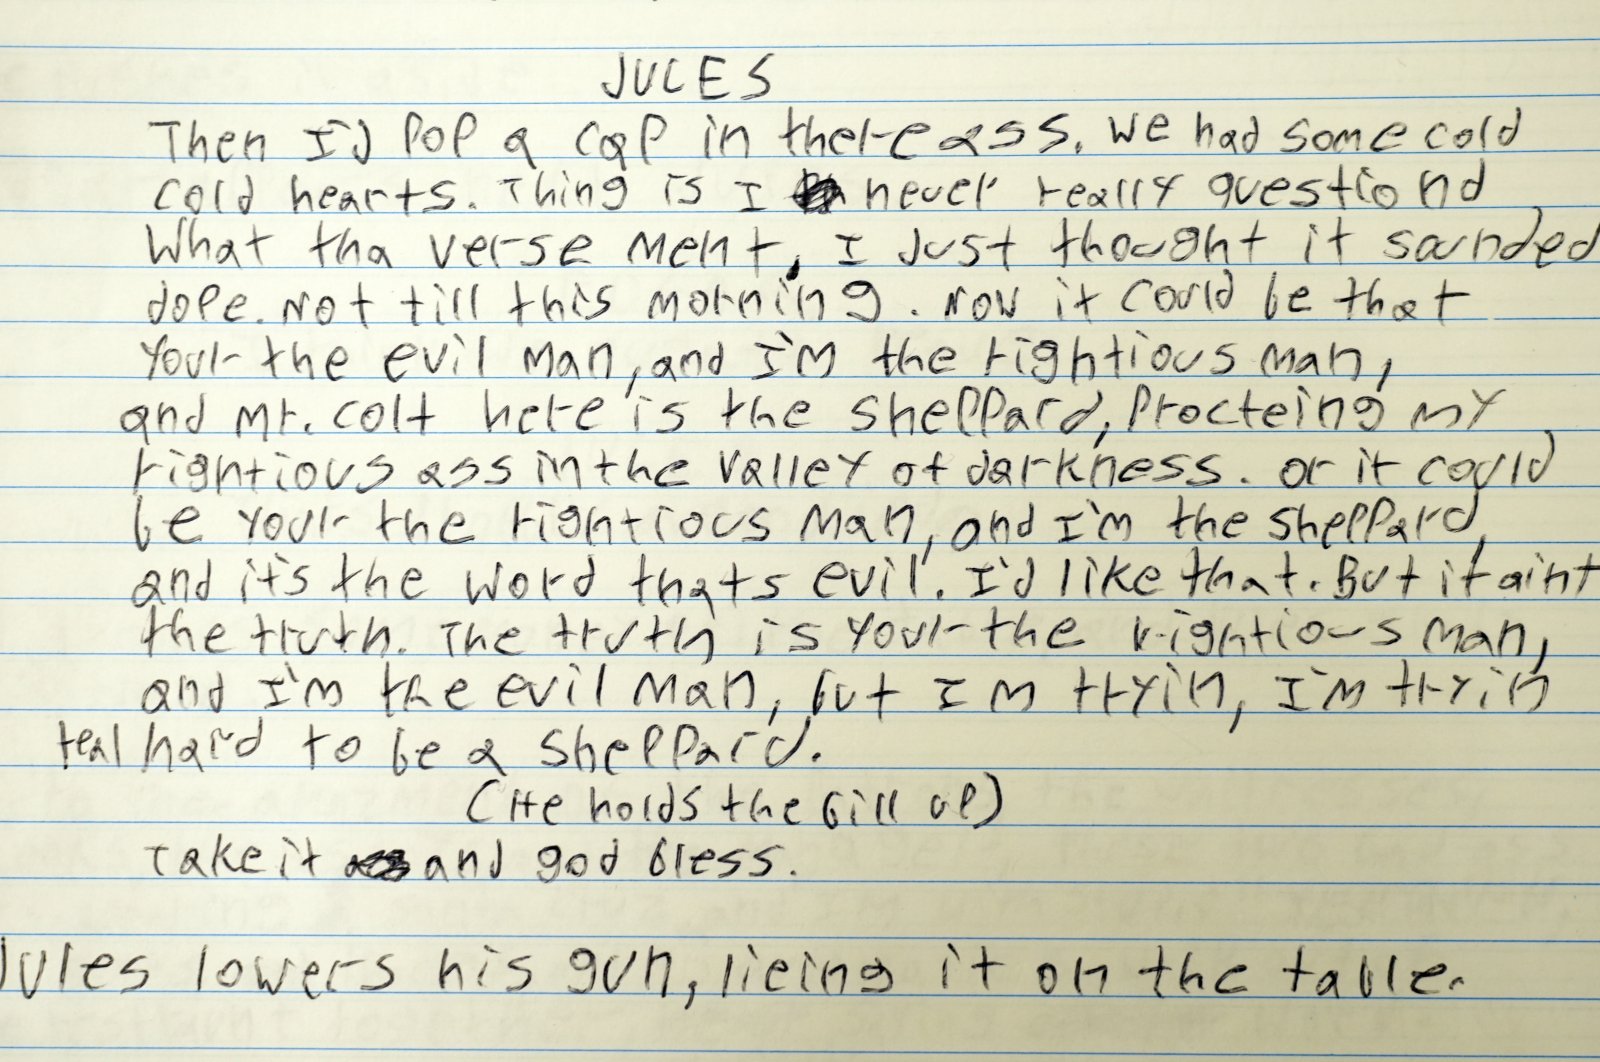 JULES
Then I'd pop a cap in there ass. We had some cold
cold hearts. Thing is I never really questiond
What tha verse ment, I Just thought it sounded
dope. Not till this morning. Now it could be that
Your the evil man, and I'm the rightious man,
and Mr. colt here is the sheppard, Procteing my
rightious ass in the valley of darkness. or it could
be your the rightious man, and I'm the sheppard,
and it's the word thats evil. I'd like that. But it aint
the truth. The truth is your the rightious man,
and I'm the evil man, but I'm tryin, I'm tryin
real hard to be a sheppard.
(He holds the Bill up)
Take it and god bless.
Jules lowers his gun, lieing it on the table.